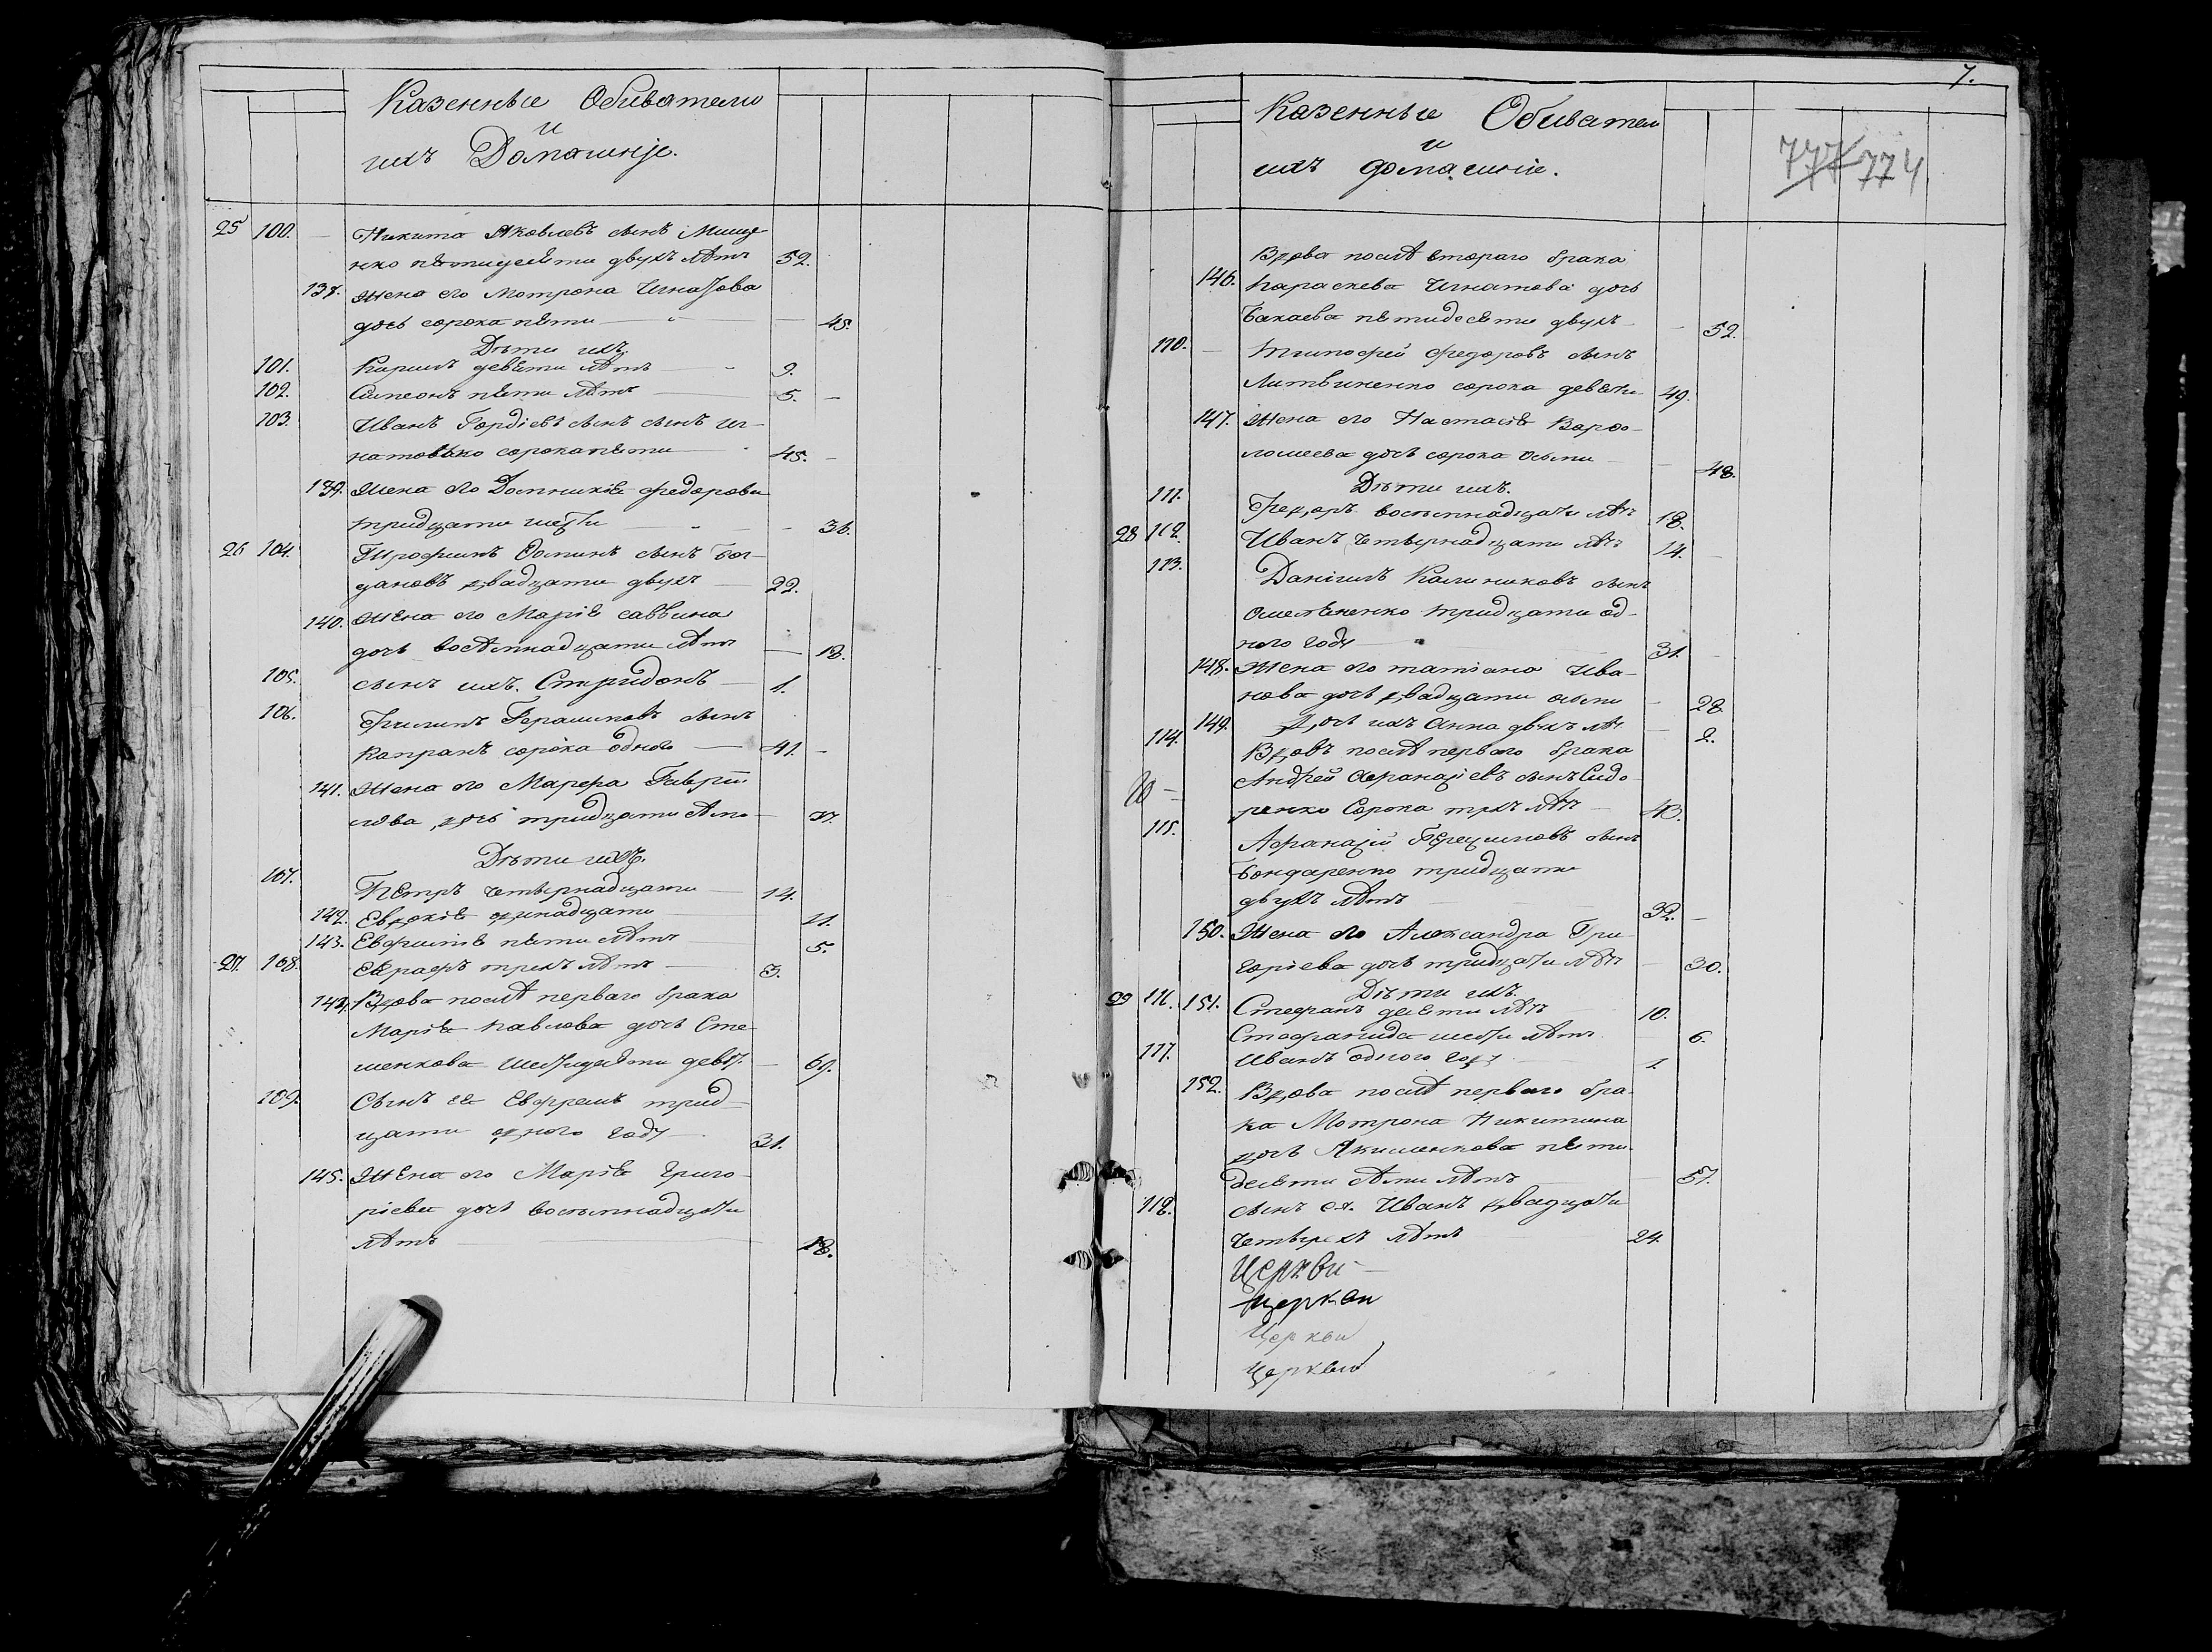 Казенные Обиватели
и
ихъ Домашніе.
25 100. Никита Яковлевъ сынъ Мище-
нко пятидесяти двухъ лѣтъ 52.
137. жена его Мотрона Игнатова
дочь сорока пяти 45.
Дѣти ихъ
101. Карпъ девяти лѣтъ 9.
102. Симеонъ пяти лѣтъ 5.
103. Иванъ Гордіевъ сынъ сынъ иг-
натовько сорокапяти 45.
139. Жена его Домникія федорова
тридцати шести 36.
26 104. Трофимъ Фоминъ сынъ Бог-
дановъ двадцати двухъ 22.
140. Жена его Марія саввина
дочь восѣмнадцати лѣтъ 18.
105. сынъ ихъ Спиридонъ 1.
106. Филипъ Герасимовъ сынъ
Капранъ сорока одного 41.
141. Жена его Марфа Гаври
лова дочь тридцати сѣми 37.
Дѣти ихъ.
107. Петръ четырнадцати 14.
142. Евдокія одинадцати 11.
143. Евфимія пяти лѣтъ 5.
27. 108. Евграфъ трехъ лѣтъ 3.
144. Вдова послѣ перваго брака
Марія павлова дочь Сте
шенкова шестидесяти девят. 69.
109. Сынъ ея Ефремъ трид
цати одного году 31.
145. Жена его Марія Григо-
ріева дочь восьмнадцати
лѣтъ 18.
7.
Казенные Обивател
и
ихъ домашніе.
777 774
Вдова послѣ втораго брака
146. параскева Игнатова дочь
Бакаева пятидесяти двухъ 52.
110. Тимофей Федоровъ сынъ
Литвиненко сорока девяти 49.
147. Жена его Настасія Варфо-
ломеева дочь сорока осьми 48.
Дѣти ихъ.
111. Федоръ восьмнадцати лѣтъ 18.
28 112. Иванъ четырнадцати лѣтъ 14.
113. Даніилъ Калиниковъ сынъ
Омельяненко тридцати од-
ного году 31.
148. Жена его татіана Ива-
нова дочь двадцати осьми 28.
149. Дочь ихъ Анна двухъ лѣт 2.
114. Вдовъ послѣ перваго брака
Андрей Афанасіевъ сынъ Сидо
ренко Сорока трехъ лѣтъ 43.
115. Афанасій сынъ
Бондаренко тридцати
двухъ лѣтъ 32.
150. Жена его Александра Гри
горіева дочь тридцати лѣтъ 30.
Дѣти ихъ.
29 116. 151. Стефанъ десяти лѣтъ 10.
Стефанида шести лѣтъ 6.
117. Иванъ одного году 1.
152. Вдова послѣ перваго бра-
ка Мотрона Никитина
дочь Якименкова пяти-
десяти сѣми лѣтъ 57.
118. сынъ ея Иванъ двадцати
четырехъ лѣтъ 24.
Церкви
Церкви
Церкви
Церкви